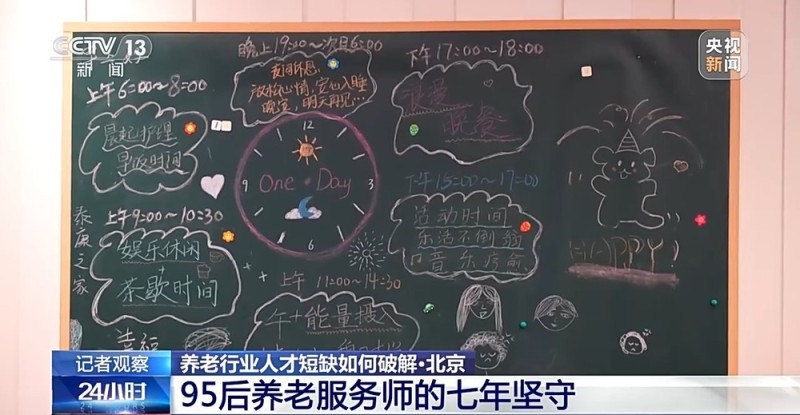 CCTV 13
新闻
央视
新闻
晚上19:00～次日6:00
夜间休息
放松心情,定心入睡
晚安,明天再见…
下午17:00～18:00
浪漫
晚餐
上午6:00～8:00
晨起护理
早饭时间
12
3
6
9
One Day
下午15:00～17:00
活动时间
乐活不倒翁
音乐疗愈
HAPPY
泰康之家
上午9:00～10:30
娱乐休闲
+
茶歇时间
上午 11:00～14:30
午+能量摄入
幸福
记者观察
24小时
养老行业人才短缺如何破解·北京
95后养老服务师的七年坚守